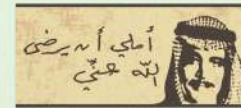 أملي أن يرضى
الله عنّي